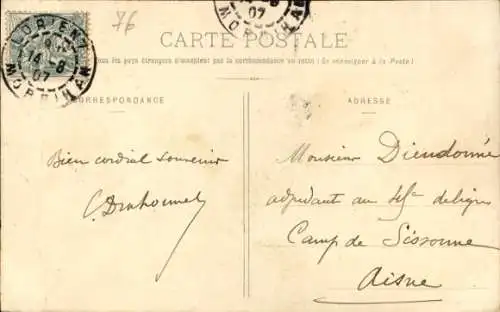 76
LORIENT
14 - 8
07
MORBIHAN
07
MORBIHAN
CARTE POSTALE
Tous les pays étrangers n'acceptent pas la correspondance au recto (Se renseigner à la Poste)
CORRESPONDANCE
ADRESSE
Bien cordial souvenir
Monsieur Dieudonné
adjudant au 45e de ligne
Camp de Sissonne
Aisne